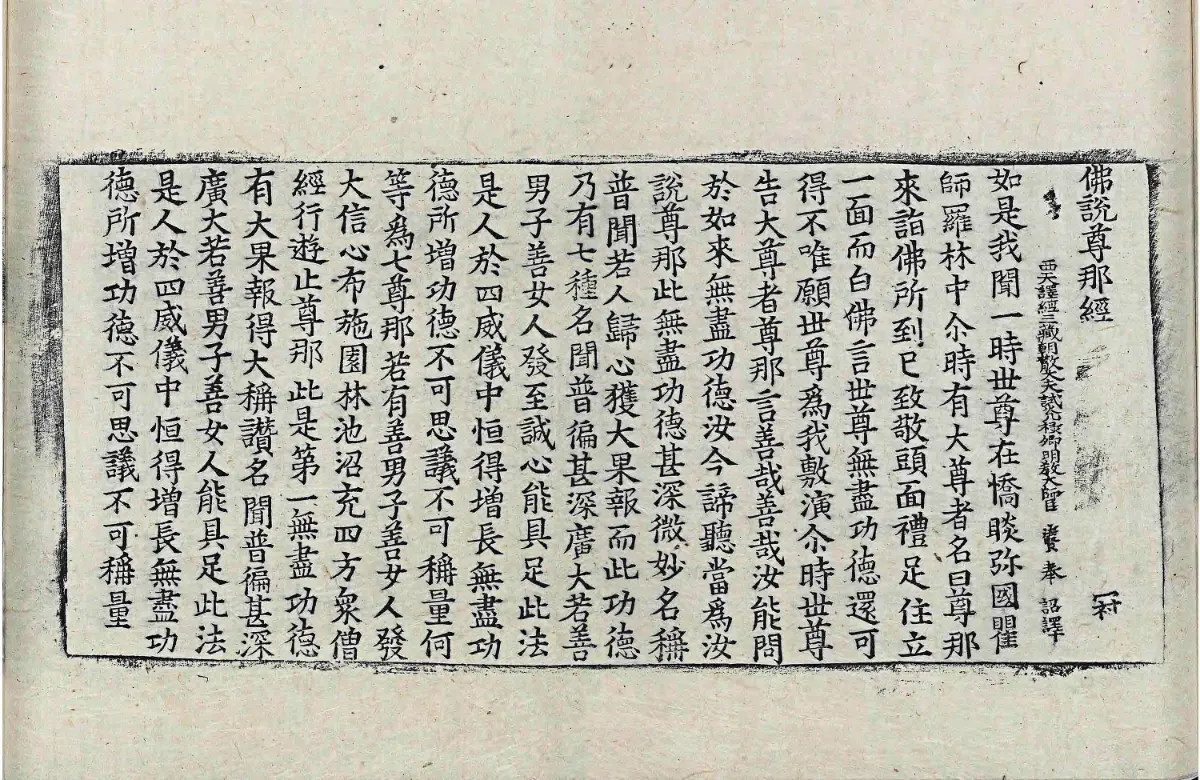 佛說尊那經
西天譯經三藏朝散大夫試光祿卿明教大師 賢奉 詔譯
如是我聞一時世尊在憍睒弥國瞿
師羅林中尒時有大尊者名曰尊那
來詣佛所到已致敬頭面禮足住立
一面而白佛言世尊無盡功德還可
得不唯願世尊爲我敷演尒時世尊
告大尊者尊那言善哉善哉汝能問
於如來無盡功德汝今諦聽當爲汝
說尊那此無盡功德甚深微妙名稱
普聞若人歸心獲大果報而此功德
乃有七種名聞普徧甚深廣大若善
男子善女人發至誠心能具足此法
是人於四威儀中恒得增長無盡功
德所增功德不可思議不可稱量何
等爲七尊那若有善男子善女人發
大信心布施園林池沼充四方衆僧
經行遊止尊那此是第一無盡功德
有大果報得大稱讚名聞普徧甚深
廣大若善男子善女人能具足此法
是人於四威儀中恒得增長無盡功
德所增功德不可思議不可稱量